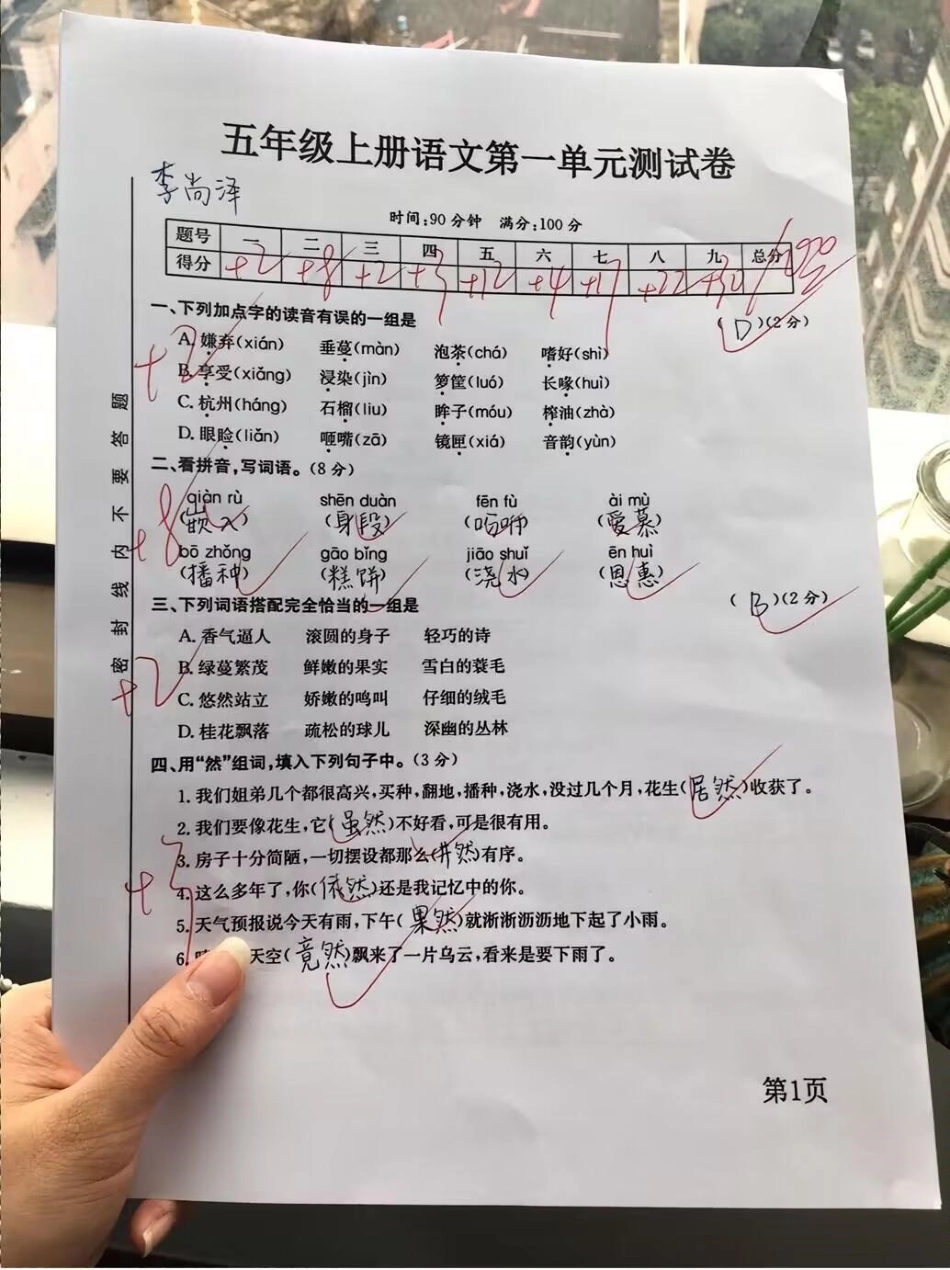 五年级上册语文第一单元测试卷
李尚泽
时间:90分钟 满分:100分
题号 一 二 三 四 五 六 七 八 九 总分
得分 +2 +8 +2 +3 +12 +4 +17 +22
一、下列加点字的读音有误的一组是 (D)(2分)
+2
A. 嫌弃(xián) 垂蔓(màn) 泡茶(chá) 嗜好(shì)
B. 享受(xiǎng) 浸染(jìn) 箩筐(luó) 长喙(huì)
C. 杭州(háng) 石榴(liu) 眸子(móu) 榨油(zhà)
D. 眼睑(liǎn) 咂嘴(zā) 镜匣(xiá) 音韵(yùn)
二、看拼音,写词语。(8分)
+8
qiàn rù shēn duàn fēn fù ài mù
(嵌入) (身段) (吩咐) (爱慕)
bō zhǒng gāo bǐng jiāo shuǐ ēn huì
(播种) (糕饼) (浇水) (恩惠)
三、下列词语搭配完全恰当的一组是 (B)(2分)
+2
A. 香气逼人 滚圆的身子 轻巧的诗
B. 绿蔓繁茂 鲜嫩的果实 雪白的蓑毛
C. 悠然站立 娇嫩的鸣叫 仔细的绒毛
D. 桂花飘落 疏松的球儿 深幽的丛林
四、用“然”组词,填入下列句子中。(3分)
+3
1. 我们姐弟几个都很高兴,买种,翻地,播种,浇水,没过几个月,花生(居然)收获了。
2. 我们要像花生,它(虽然)不好看,可是很有用。
3. 房子十分简陋,一切摆设都那么(井然)有序。
4. 这么多年了,你(依然)还是我记忆中的你。
5. 天气预报说今天有雨,下午(果然)就淅淅沥沥地下起了小雨。
6. 天空(竟然)飘来了一片乌云,看来是要下雨了。
密封线内不要答题
第1页